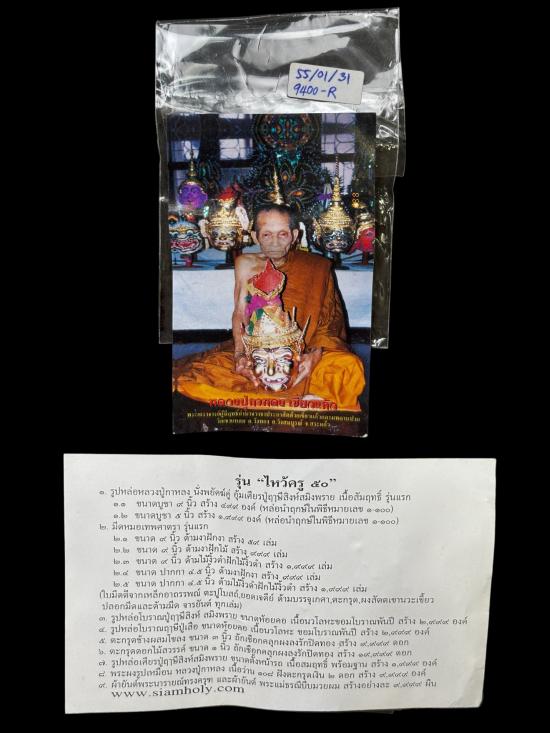 55/01/31
9400-R
หลวงปู่กาหลง เขี้ยวแก้ว
รุ่น “ไหว้ครู ๕๐”
๑. รูปหล่อหลวงปู่กาหลง นั่งพยัคฆ์คู่ อุ้มเศียรปู่ฤๅษีสิงห์สมิงพราย เนื้อสัมฤทธิ์ รุ่นแรก
๑.๑ ขนาดบูชา ๙ นิ้ว สร้าง ๔๙๙ องค์ (หล่อนำฤกษ์ในพิธีหมายเลข ๑-๑๐๐)
๑.๒ ขนาดบูชา ๕ นิ้ว สร้าง ๑,๙๙๙ องค์ (หล่อนำฤกษ์ในพิธีหมายเลข ๑-๑๐๐)
๒. มีดหมอเทพศาตรา รุ่นแรก
๒.๑ ขนาด ๙ นิ้ว ด้ามงาฝักงา สร้าง ๕๙ เล่ม
๒.๒ ขนาด ๙ นิ้ว ด้ามงาฝักไม้ สร้าง ๙๙๙ เล่ม
๒.๓ ขนาด ๙ นิ้ว ด้ามไม้งิ้วดำฝักไม้งิ้วดำ สร้าง ๑,๙๙๙ เล่ม
๒.๔ ขนาด ปากกา ๔.๕ นิ้ว ด้ามงาฝักงา สร้าง ๙๙๙ เล่ม
๒.๕ ขนาด ปากกา ๔.๕ นิ้ว ด้ามไม้งิ้วดำฝักไม้งิ้วดำ สร้าง ๑,๙๙๙ เล่ม
(ใบมีดตีจากเหล็กอาถรรพณ์ ตะปูโบสถ์,ยอดเจดีย์ ด้ามบรรจุเกศา,ตะกรุด,ผงสัตตเขานวะเขี้ยว
ปลอกมีดและด้ามมีด จารอักขระ ทุกเล่ม)
๓. รูปหล่อโบราณปู่ฤๅษีสิงห์ สมิงพราย ขนาดห้อยคอ เนื้อนวโลหะชอมโบราณพันปี สร้าง ๒,๙๙๙ องค์
๔. รูปหล่อโบราณฤาษีปู่เสือ ขนาดห้อยคอ เนื้อนวโลหะ ชอมโบราณพันปี สร้าง ๒,๙๙๙ องค์
๕. ตะกรุดช้างผสมโขลง ขนาด ๓ นิ้ว ถักเชือกคลุกผงลงรักปิดทอง สร้าง ๙,๙๙๙ ดอก
๖. ตะกรุดดอกไม้สวรรค์ ขนาด ๑ นิ้ว ถักเชือกคลุกผงลงรักปิดทอง สร้าง ๑๙,๙๙๙ ดอก
๗. รูปหล่อเศียรปู่ฤๅษีสิงห์สมิงพราย ขนาดตั้งหน้ารถ เนื้อสัมฤทธิ์ พร้อมฐาน สร้าง ๑,๙๙๙ องค์
๘. พระผงรูปเหมือน หลวงปู่กาหลง เนื้อว่าน ๑๐๘ ฝังตะกรุดเงิน ๒ ดอก สร้าง ๙,๙๙๙ องค์
๙. ผ้ายันต์พระนารายณ์ทรงครุฑ และผ้ายันต์ พระแม่ธรณีบีบมวยผม สร้างอย่างละ ๙,๙๙๙ ผืน
www.siamholy.com